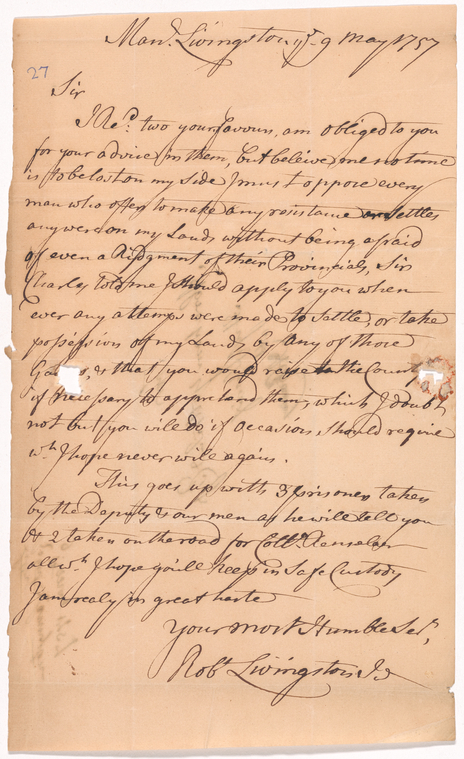 Man.r Livingston ye 9 May 1757
27
Sir
I Rec.d two your favours, am obliged to you
for your advice in them, but beleive me no time
is to be lost on my side I must oppose every
man who offers to make any resistance or settles
any were on my Lands without being afraid
of even a Ridgment of their Provincials, Sir
Charles told me I should apply to you when
ever any attemps were made to settle, or take
possession of my Lands by any of those
& that you would raise the County
if necessary to apprehend them, which I doubt
not but you will do if occasion should require
w.h I hope never will again.
This goes up with 3 prisoners taken
by the Deputy & our men as he will tell you
& 2 taken on the road for Coll. Renselaer
all w.h I hope you'll keep in Safe Custody
I am realy in great haste
Your most Humble Ser.t,
Rob.t Livingston Jr